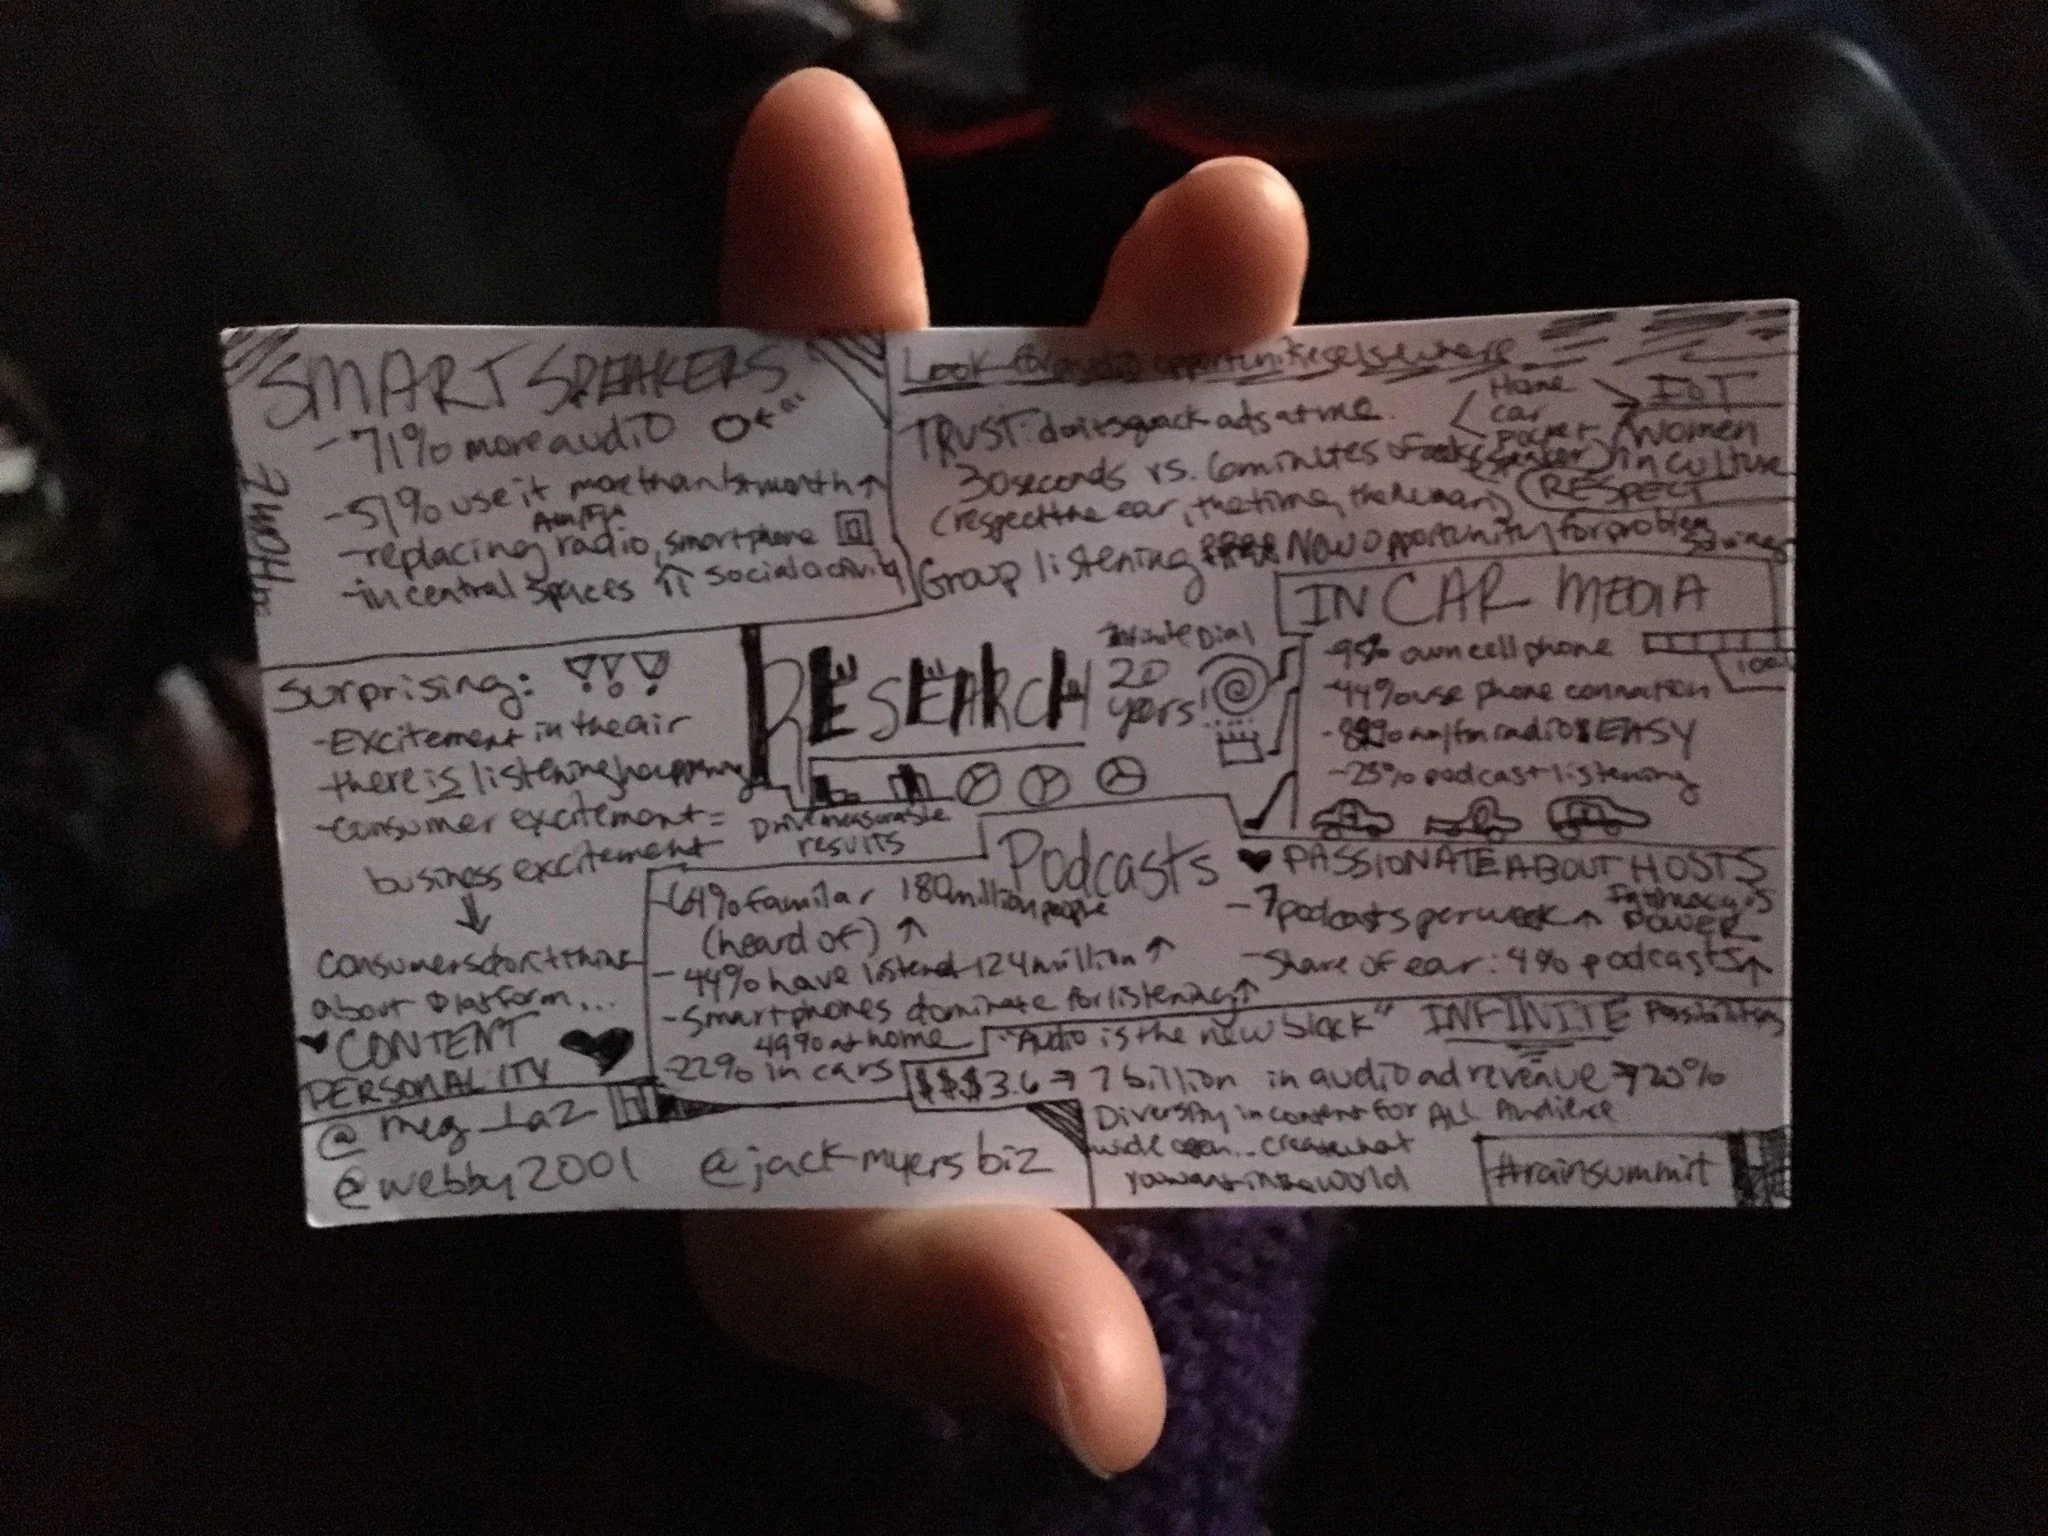 SMART SPEAKERS
-71% more audio
-51% use it more than 1st month ↑
AM/FM
-replacing radio, smartphone
-in central spaces ⇈ social activity
Surprising:
-Excitement in the air
there is listening happening
-Consumer excitement =
business excitement
↓
Consumers don't think
about platform...
♥ CONTENT
PERSONALITY
@meg_laz
@webby2001 @jackmyersbiz
Look for audio opportunities elsewhere
TRUST: don't quack ads at me.
30 seconds vs. 6 minutes of
(respect the ear, the time, the human)
Group listening New opportunity for problem
solving
Home
car
pocket
IoT
Women
in culture
RESPECT
RESEARCH
Infinite Dial
20
years!
Drive measurable
results
IN CAR MEDIA
100%
-95% own cell phone
-44% use phone connection
am/fm radio EASY
-25% podcast listening
Podcasts
-64% familar 180 million people
(heard of) ↑
-44% have listened 124 million ↑
-Smartphones dominate for listening ↑
49% at home
-22% in cars
♥ PASSIONATE ABOUT HOSTS
-7 podcasts per week ↑
Intimacy is
POWER
-Share of ear: 4% podcasts ↑
"Audio is the new black" INFINITE Possibilities
$$$3.6 → 7 billion in audio ad revenue → 720%
Diversity in content for ALL Audience
wide open... create what
you want in the world
#rainsummit